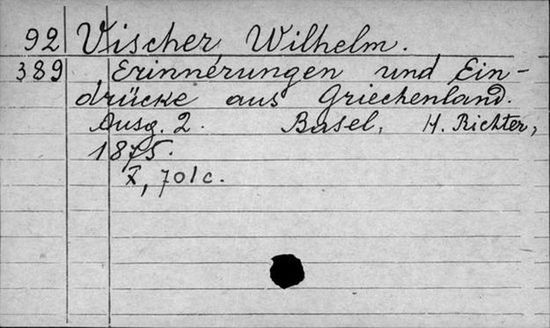 92 Vischer, Wilhelm.
389 Erinnerungen und Ein-
drücke aus Griechenland.
Ausg. 2. Basel, H. Richter,
1875.
X, 701 c.